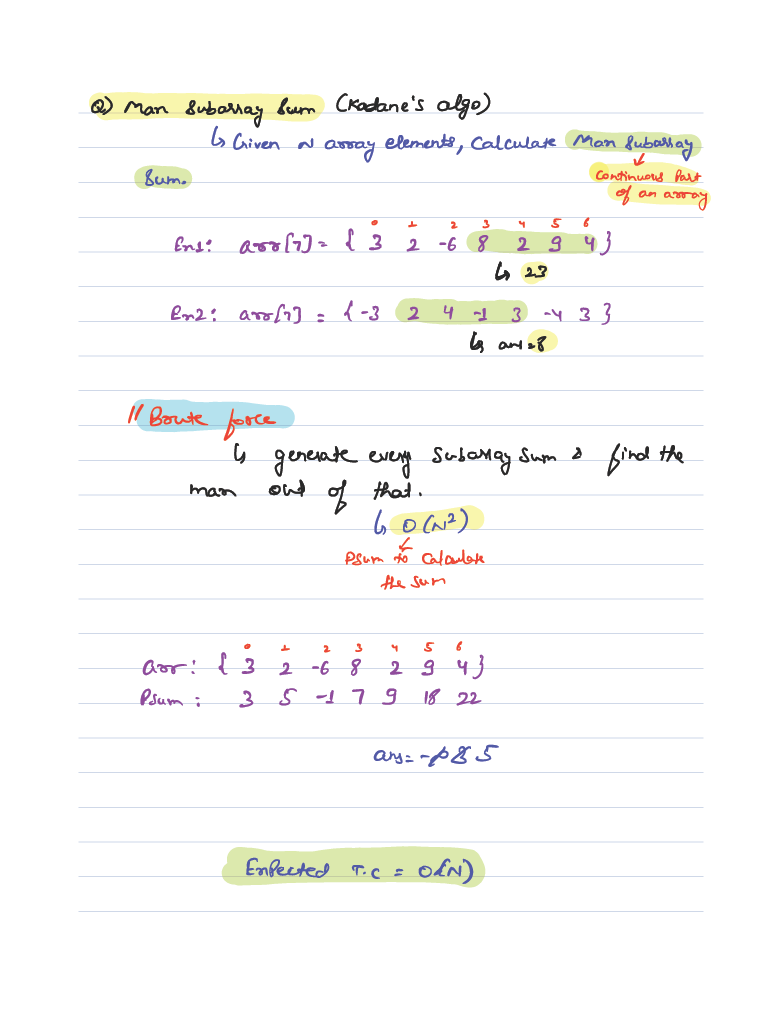 Q) Max Subarray Sum (Kadane's algo)
↳ Given N array elements, Calculate Max Subarray
Sum.
Continuous Part
of an array
0 1 2 3 4 5 6
Ex1: arr[7] = { 3 2 -6 8 2 9 4 }
↳ 23
Ex2: arr[7] = { -3 2 4 -1 3 -4 3 }
↳ ans=8
// Broute force
↳ generate every subarray sum & find the
max out of that.
↳ O(N²)
Psum to Calculate
the sum
0 1 2 3 4 5 6
arr: { 3 2 -6 8 2 9 4 }
Psum: 3 5 -1 7 9 18 22
ans= 5
Expected T.C = O(N)